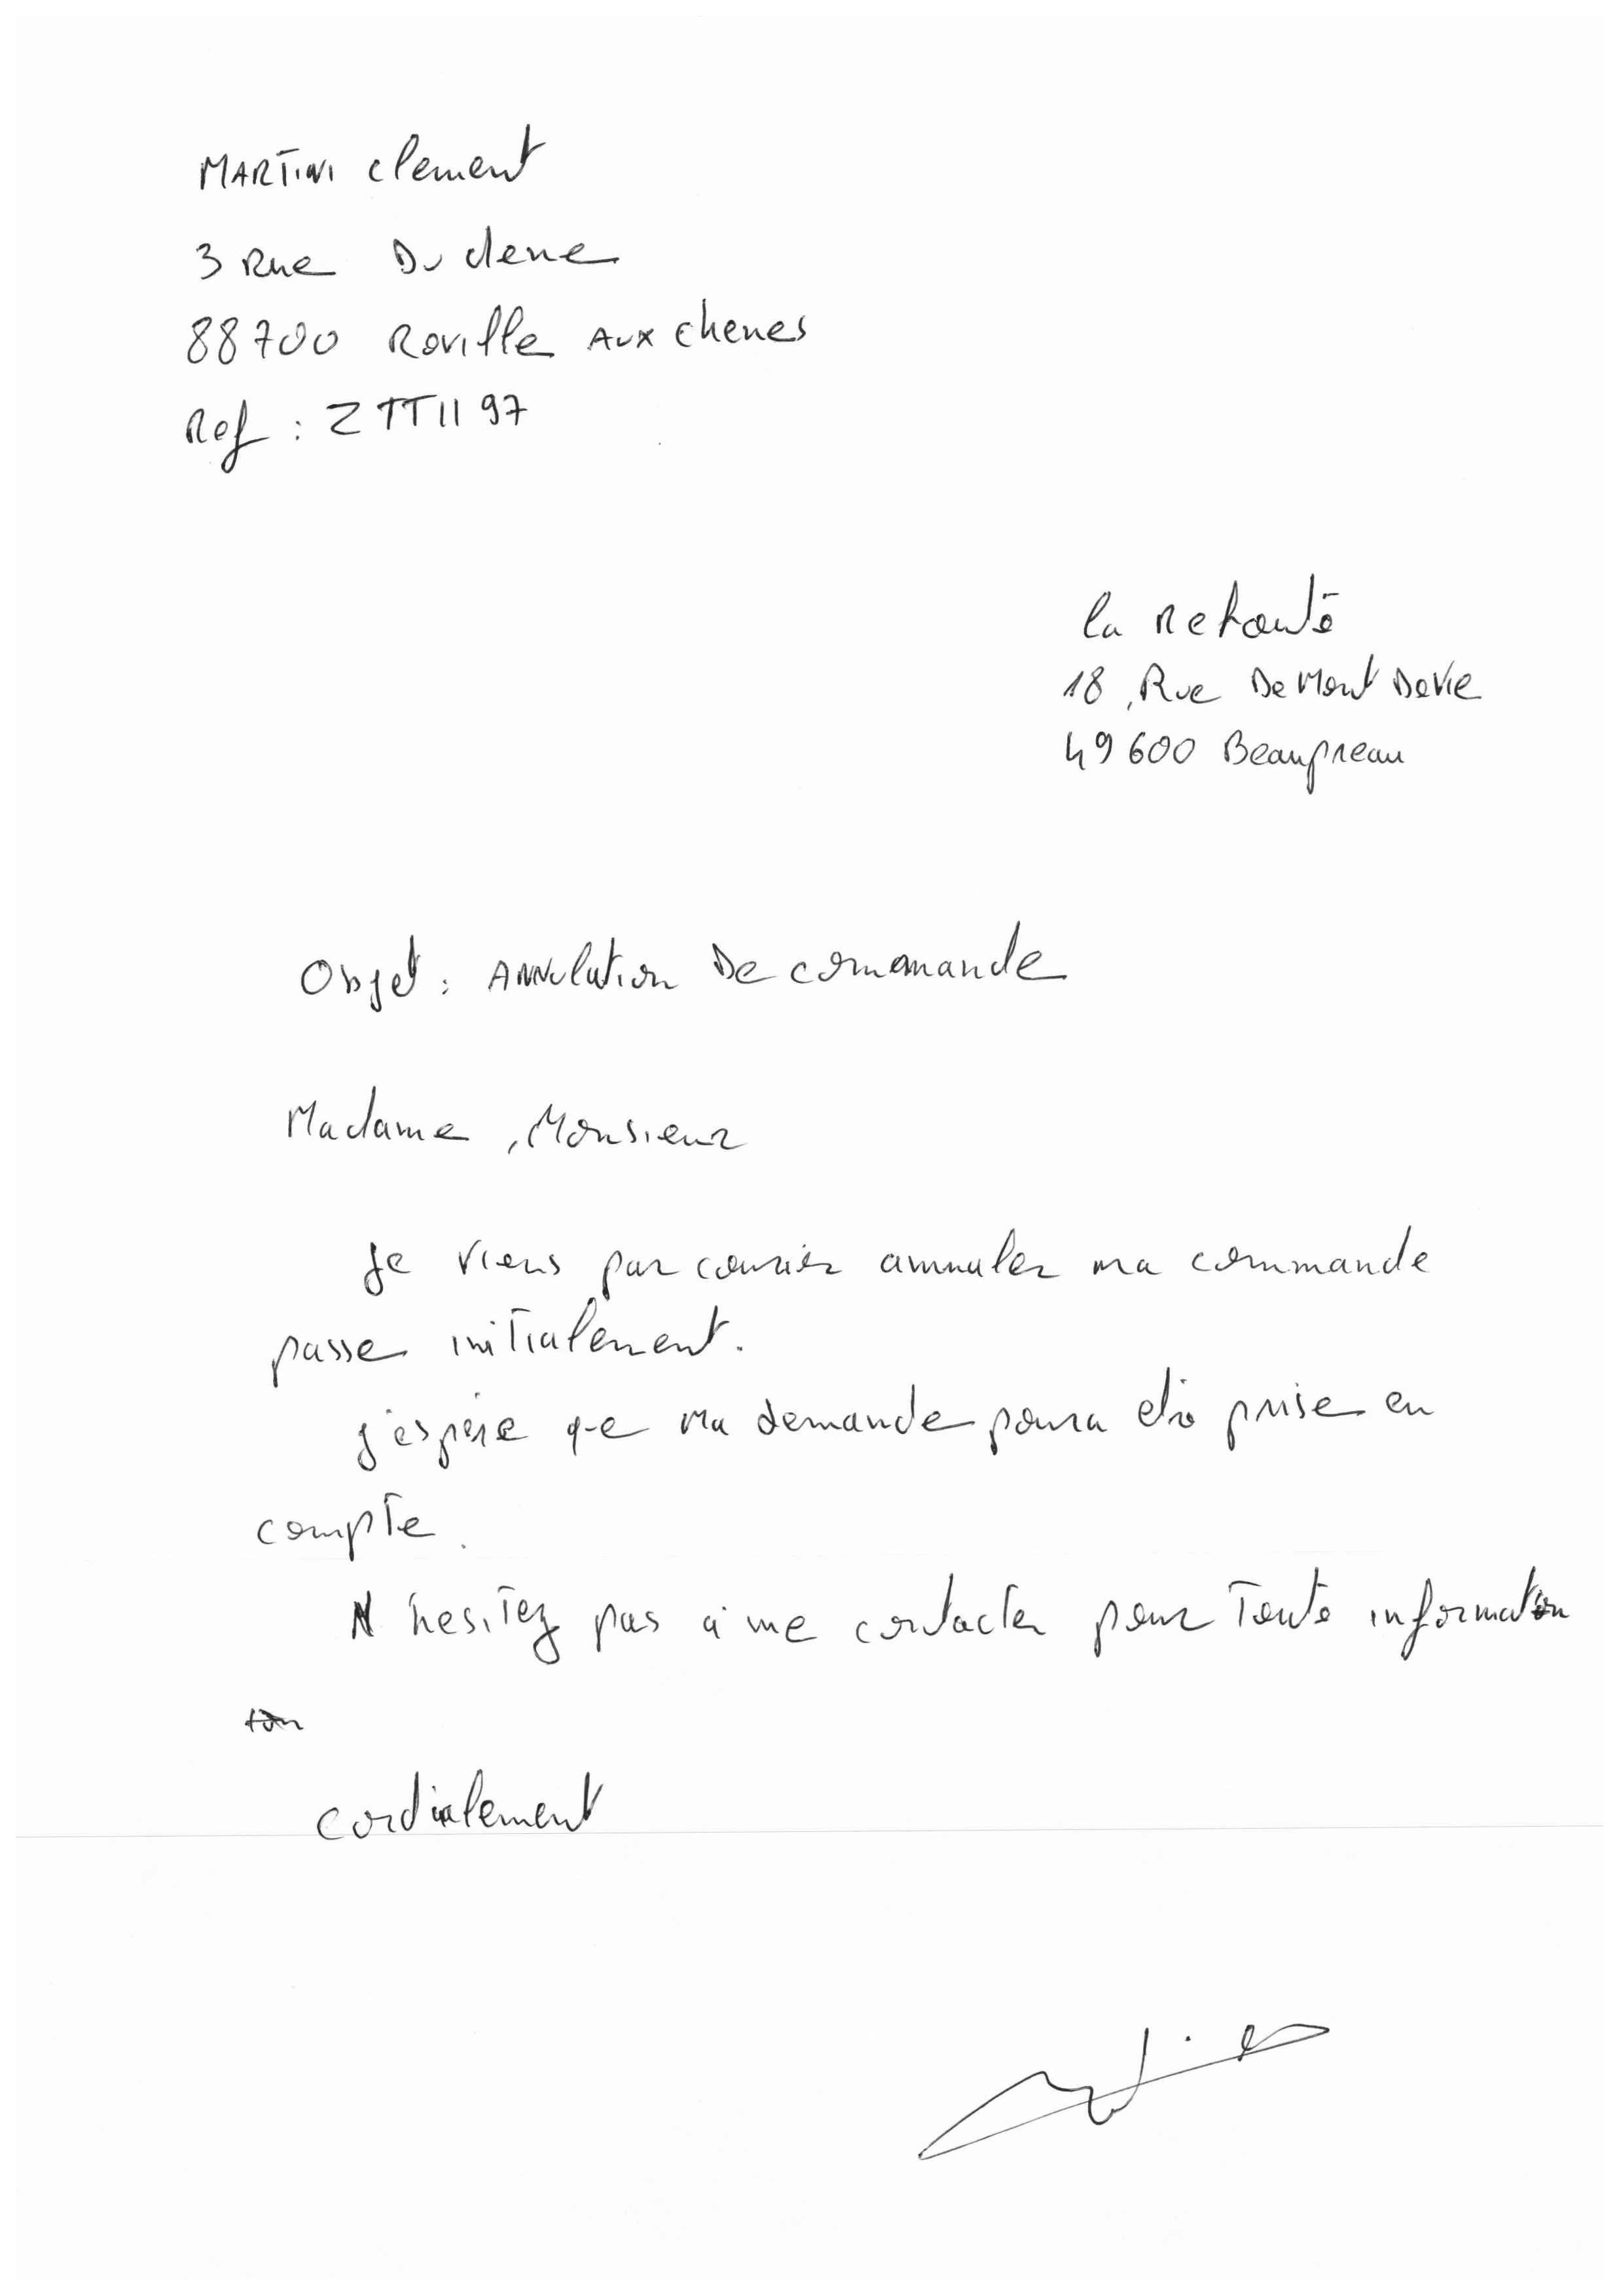 MARTINI clement
3 Rue Du clene
88700 Roville Aux chenes
Ref : ZTTII97
la Retouté
18, Rue De Mont De Vie
49600 Beaupreau
Objet : ANNulation De commande
Madame, Monsieur
Je viens par courier annuler ma commande
passe initialement.
J'espère que ma demande poura etre prise en
compte.
N'hesitez pas à me contacter pour Toute information
Cordialement